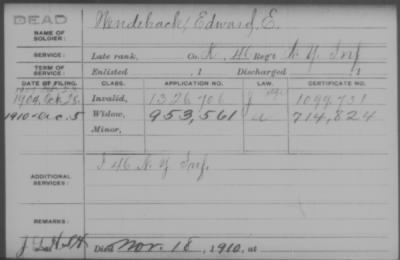 DEAD
NAME OF SOLDIER: Wendeback, Edward, E.
SERVICE: Late rank, Co. K, 46 Reg't N. Y. Inf
TERM OF SERVICE: Enlisted , 1 Discharged , 1
DATE OF FILING. CLASS. APPLICATION NO. LAW. CERTIFICATE NO.
1904, Oct. 28, Invalid, 1326706 1099,731
1910-Dec. 5 Widow, 953,561 714,824
Minor,
ADDITIONAL SERVICES: I 46 N. Y. Inf.
REMARKS:
Died Nov. 18, 1910, at